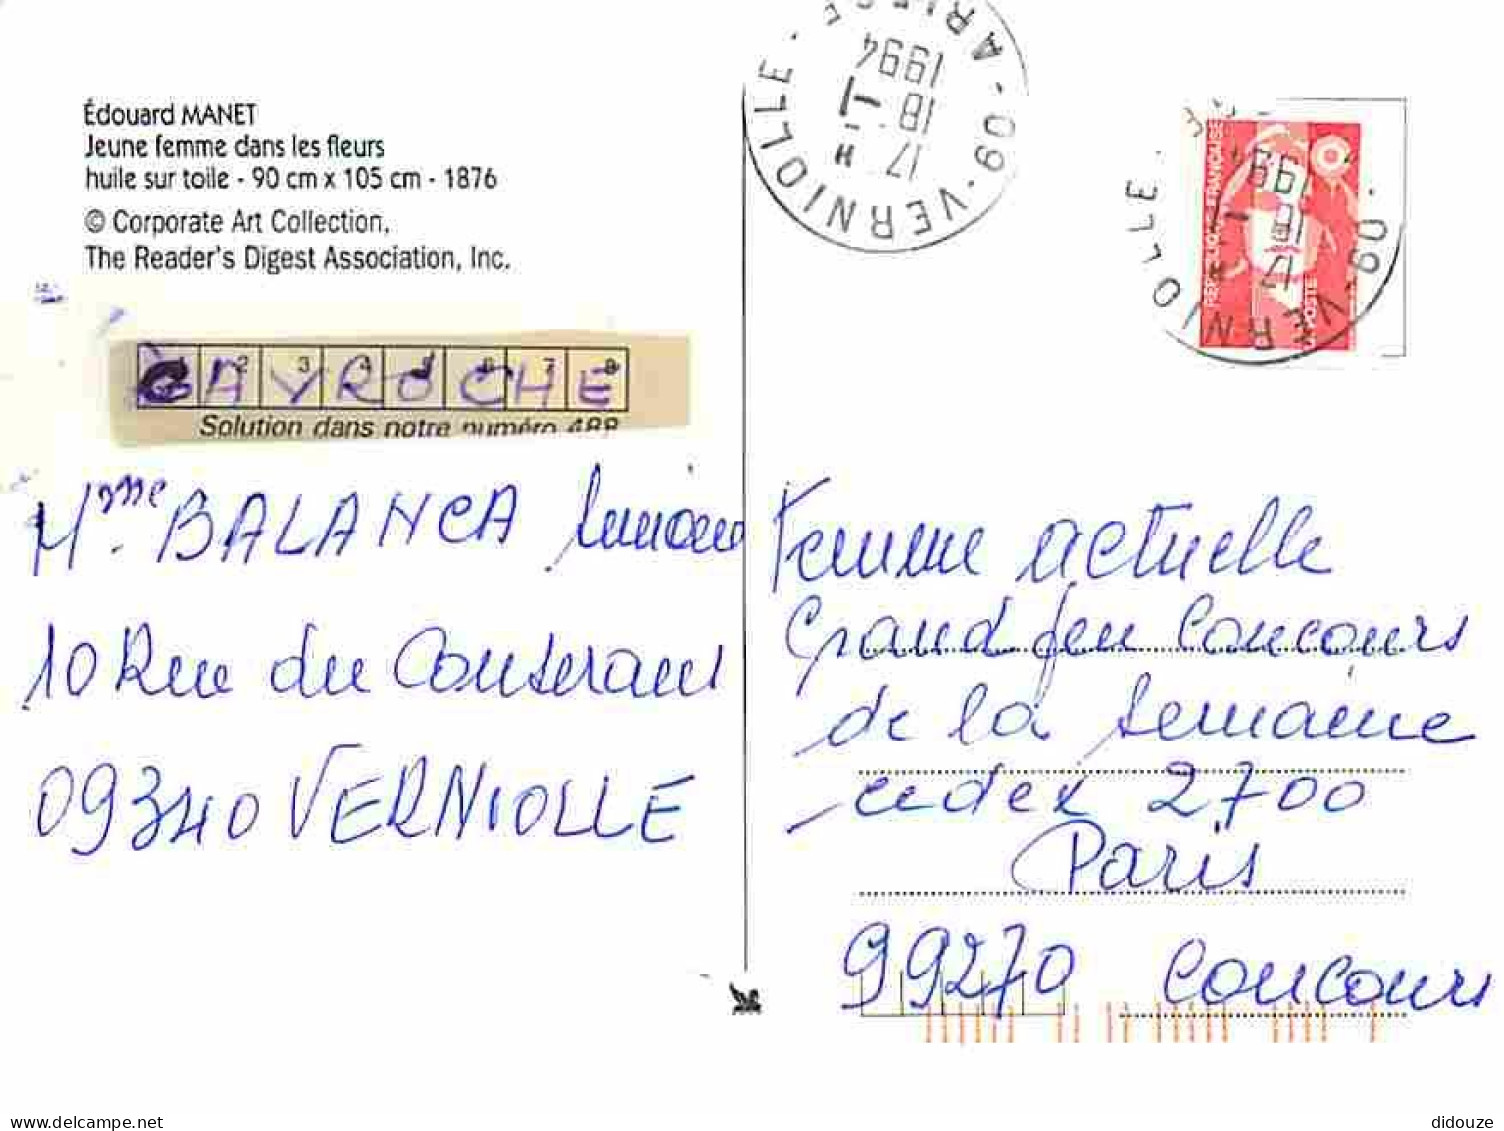 Édouard MANET
Jeune femme dans les fleurs
huile sur toile - 90 cm x 105 cm - 1876
© Corporate Art Collection,
The Reader's Digest Association, Inc.
1 2 3 4 5 6 7 8
GAVROCHE
Solution dans notre numéro 488
Mme BALANCA
10 Rue du Couserans
09340 VERNIOLLE
09 - VERNIOLLE - ARIEGE
17 H
18 - 1
1994
RÉPUBLIQUE FRANÇAISE
POSTE
09 - VERNIOLLE
17
18 - 1
1994
Femme actuelle
Grand jeu Concours
de la semaine
cedex 2700
Paris
99270 Concours
delcampe.net
didouze